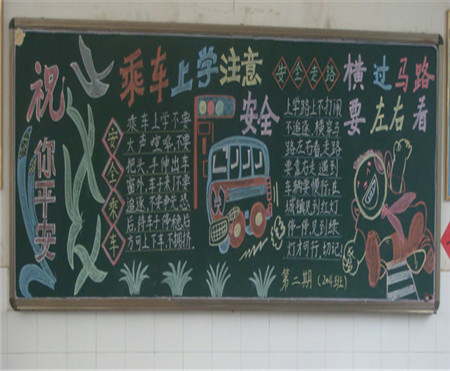 祝你平安
乘车上学注意
安全
安全乘车
乘车上学不要
大声喧哗,不要
把头、手伸出车
窗外,车未停不要
追逐,不要争先恐
后,待车子停稳后
方可上下车,不拥挤。
安全走路
上学路上不打闹
不追逐,横穿马
路左右看,走路
要靠右走,遇到
车辆要慢行,在
城镇见到红灯
停一停,见到绿
灯才可行,切记!
横过马路
要左右看
第二期(204班)